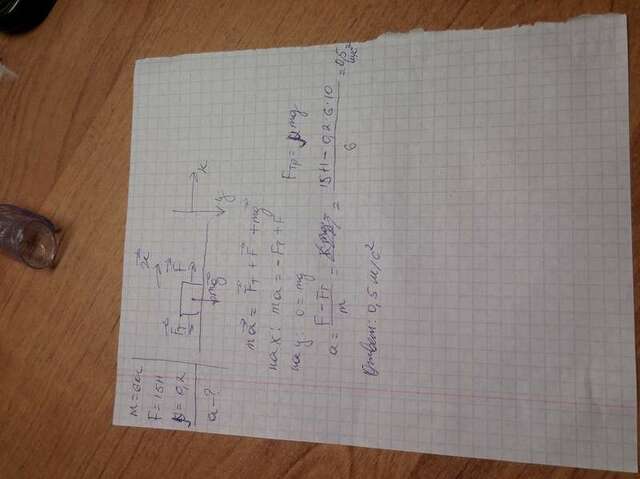 m = 6кг
F = 15Н
μ = 0,2
a - ?
Fт
F
mg
x
y
ma = Fт + F + mg
на x: ma = - Fт + F
на y: 0 = mg
Fтр = μmg
a = F - Fт / m = = 15Н - 0,2·6·10 / 6 = 0,5
Ответ: 0,5 м/с²